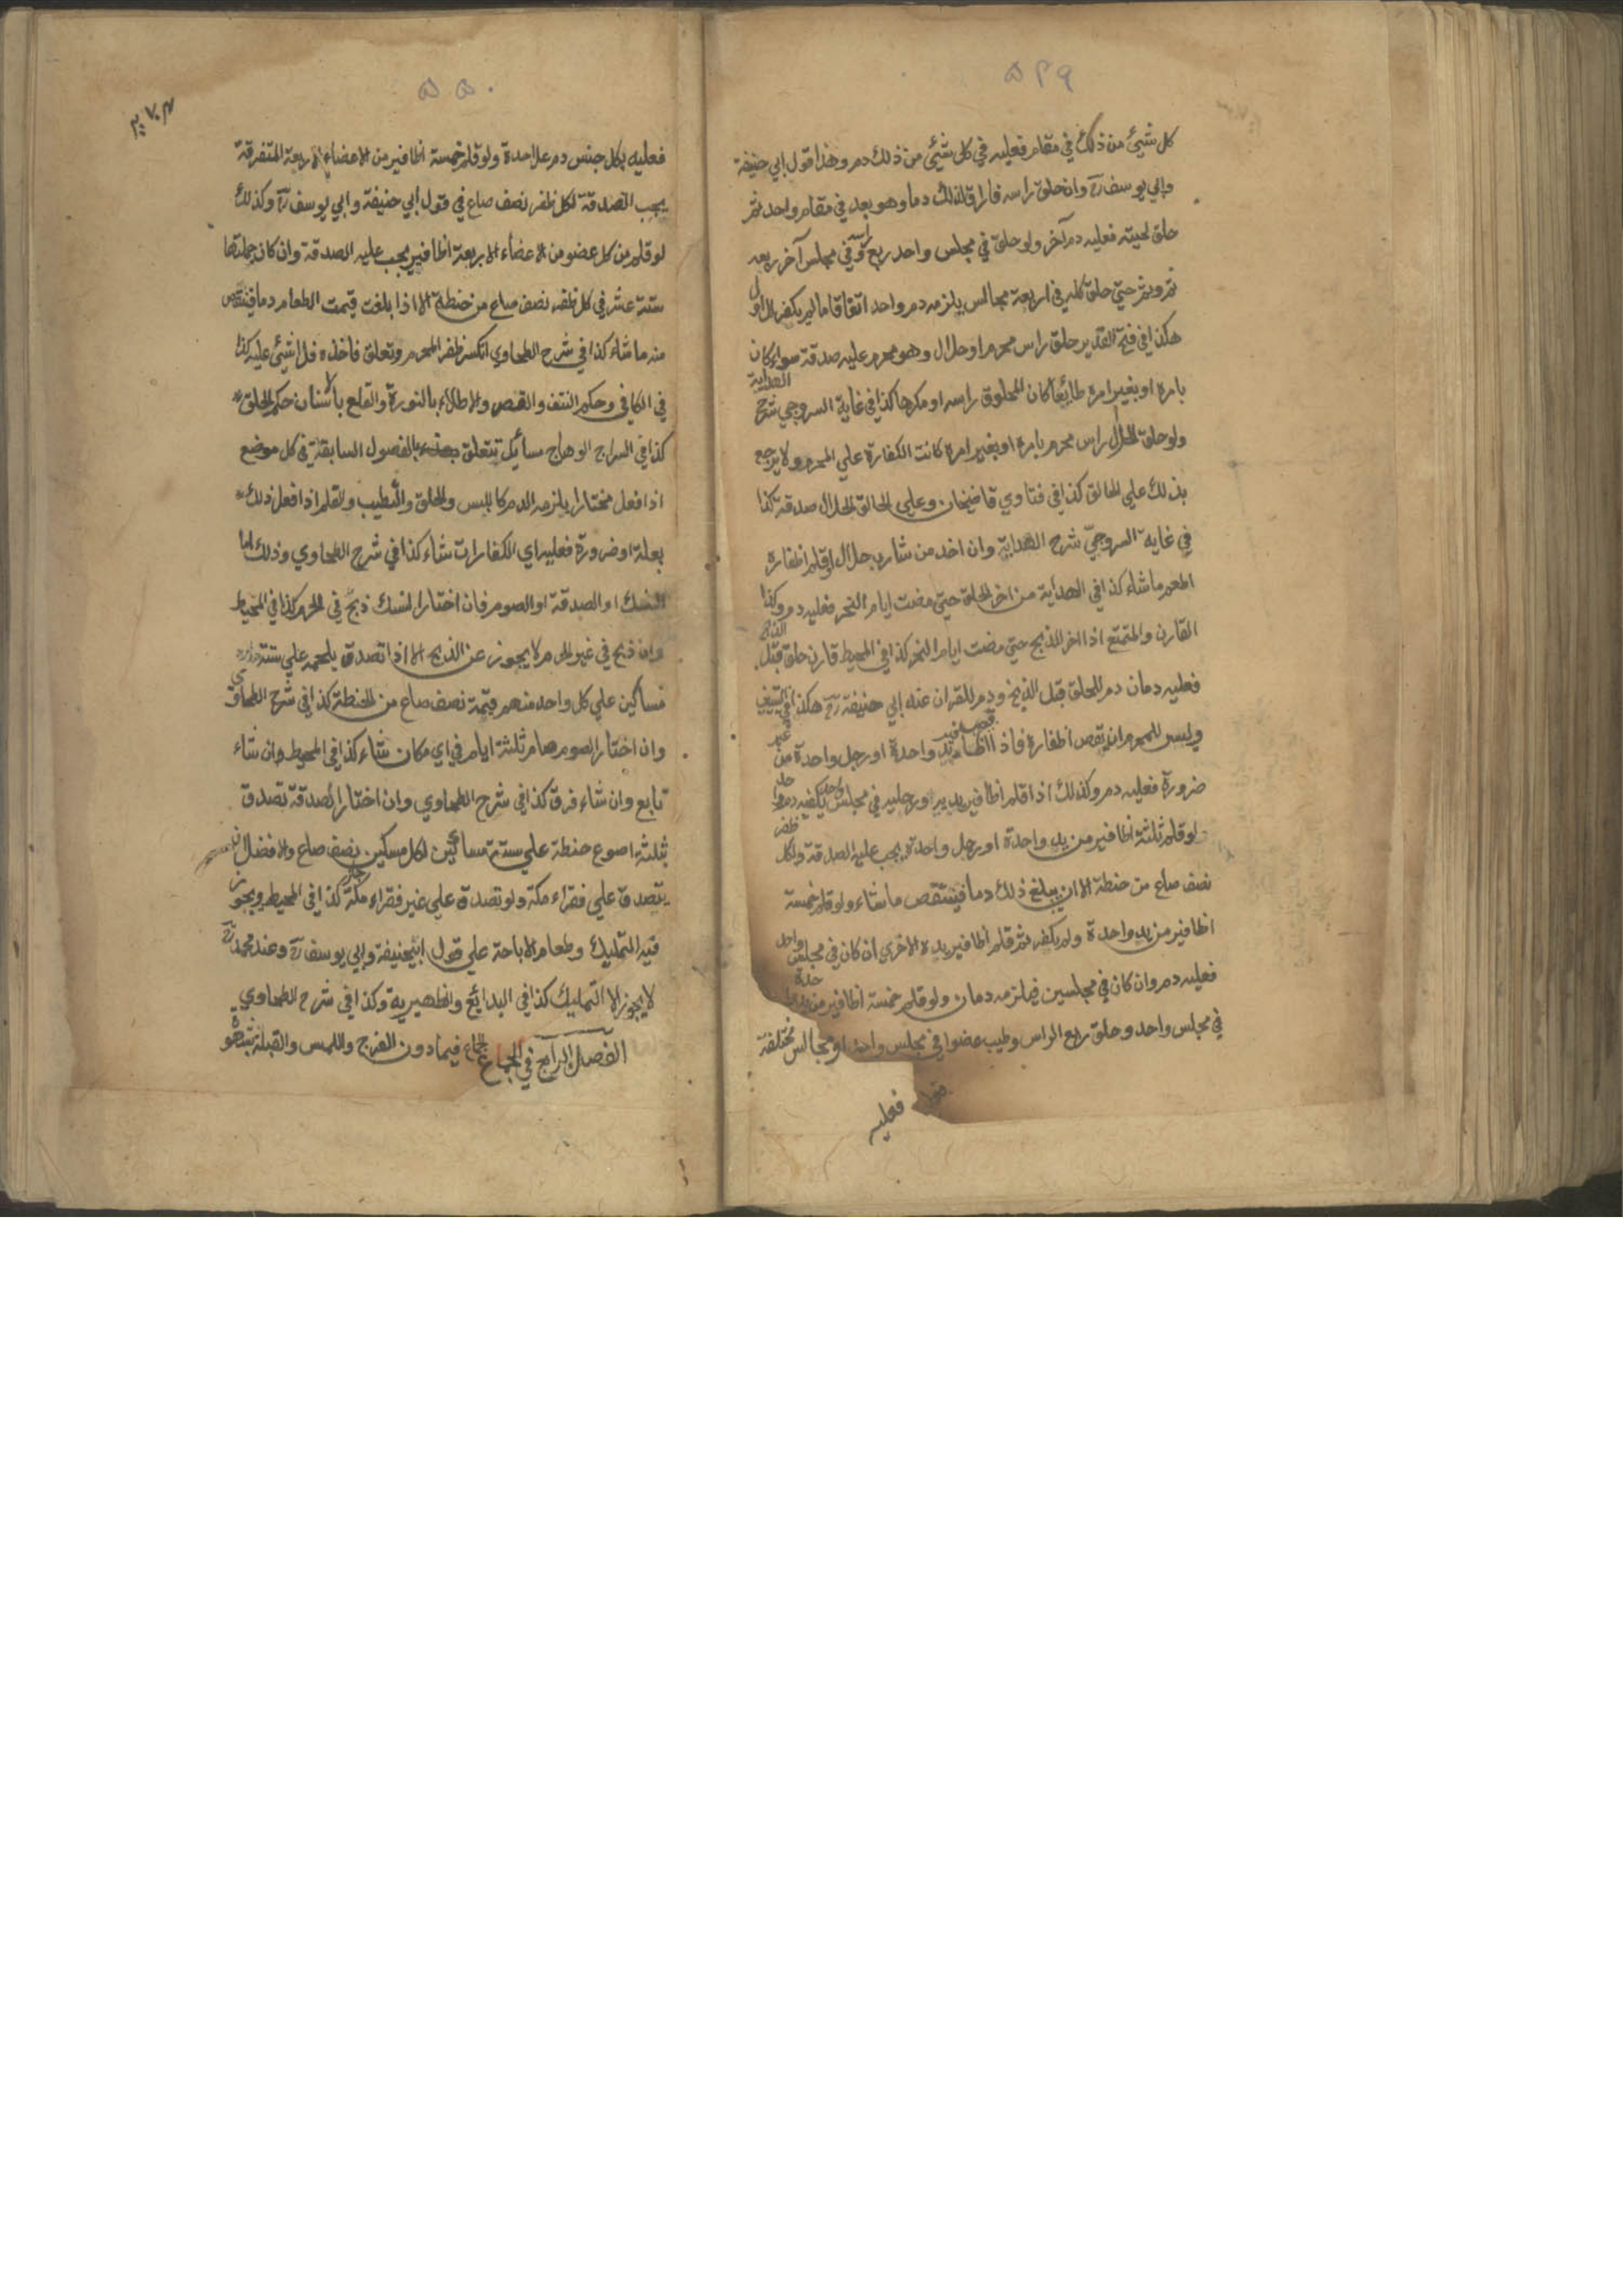 ۵۴۹
كل شيئ من ذلك في مقام فعليه في كل شيئ من ذلك دم وهذا قول ابي حنيفة
وابي يوسف رح وان حلق راسه فاراق لذلك دما وهو بعد في مقام واحد ثم
حلق لحيته فعليه دم آخر ولو حلق في مجلس واحد ربع راسه وفي مجلس آخر ربعه
ثم وثم حتي حلق كله في اربعة مجالس يلزمه دم واحد اتفاقا ما لم يكفر للاول
هكذا في فتح القدير حلق راس محرم او حلال وهو محرم عليه صدقة سواء كان
بامره او بغير امره طائعا كان المحلوق راسه او مكرها كذا في غاية السروجي شرح الهداية
ولو حلق الحلال راس محرم بامره او بغير امره كانت الكفارة علي المحرم ولا يرجع
بذلك علي الحالق كذا في فتاوي قاضيخان وعلي الحالق الحلال صدقة كذا
في غاية السروجي شرح الهداية وان اخذ من شارب حلال او قلم اظفاره
اطعم ما شاء كذا في الهداية من اخر الحلق حتي مضت ايام النحر فعليه دم وكذا
القارن والمتمتع اذا اخر الذبح حتي مضت ايام النحر كذا في المحيط قارن حلق قبل الذبح
فعليه دمان دم للحلق قبل الذبح ودم للقران عند ابي حنيفة رح هكذا في التبيين
وليس للمحرم ان يقص اظفاره فاذا قص اظافير يد واحدة او رجل واحدة من غير
ضرورة فعليه دم وكذلك اذا قلم اظافير يديه ورجليه في مجلس واحد يكفيه دم واحد
ولو قلم ثلثة اظافير من يد واحدة او رجل واحدة يجب عليه الصدقة ولكل ظفر
نصف صاع من حنطة الا ان يبلغ ذلك دما فينتقص ما شاء ولو قلم خمسة
اظافير من يد واحدة ولم يكفر ثم قلم اظافير يده الاخري ان كان في مجلس واحد
فعليه دم وان كان في مجلسين فيلزمه دمان ولو قلم خمسة اظافير من يد واحدة
في مجلس واحد وحلق ربع الراس وطيب عضوا في مجلس واحد او مجالس مختلفة
فعليه
۵۵۰
فعليه بكل جنس دم علاحدة ولو قلم خمسة اظافير من الاعضاء الاربعة المتفرقة
يجب الصدقة لكل ظفر نصف صاع في قول ابي حنيفة وابي يوسف رح وكذلك
لو قلم من كل عضو من الاعضاء الاربعة اظافير يجب عليه الصدقة وان كان جملتها
ستة عشر في كل ظفر نصف صاع من حنطة الا اذا بلغت قيمت الطعام دما فينتقص
منه ما شاء كذا في شرح الطحاوي انكسر ظفر المحرم وتعلق فاخذه فلا شيئ عليه كذا
في الكافي وحكم النتف والقص والاطلاء بالنورة والقلع بالاسنان حكم الحلق
كذا في السراج الوهاج مسائل تتعلق بالفصول السابقة في كل موضع
اذا فعل مختارا يلزمه الدم كاللبس والحلق والتطيب والقلم اذا فعل ذلك
بعلة او ضرورة فعليه اي الكفارات شاء كذا في شرح الطحاوي وذلك اما
النسك او الصدقة او الصوم فان اختار النسك ذبح في الحرم كذا في المحيط
وان ذبح في غير الحرم لا يجوز عن الذبح الا اذا تصدق بلحمه علي ستة
مساكين علي كل واحد منهم قيمة نصف صاع من الحنطة كذا في شرح الطحاوي
وان اختار الصوم صام ثلثة ايام في اي مكان شاء كذا في المحيط وان شاء
تابع وان شاء فرق كذا في شرح الطحاوي وان اختار الصدقة تصدق
بثلثة اصوع حنطة علي ستة مساكين لكل مسكين نصف صاع والافضل ان
يتصدق علي فقراء مكة ولو تصدق علي غير فقراء مكة جاز كذا في المحيط ويجوز
فيه التمليك وطعام الاباحة علي قول ابيحنيفة وابي يوسف رح وعند محمد رح
لا يجوز الا التمليك كذا في البدائع والظهيرية وكذا في شرح الطحاوي
الفصل الرابع في الجماع الجماع فيما دون الفرج واللمس والقبلة بشهوة